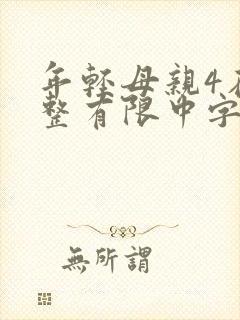 年轻母親4在
整有限中字
無所謂